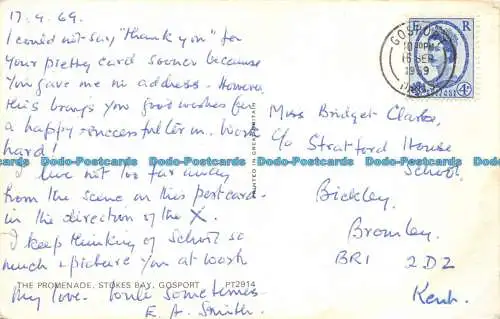 17.9.69.
I could not say "thank you" for
your pretty card sooner because
you gave me no address. However
this brings you good wishes for
a happy + successful term. Work
hard!
I live not too far away
from the scene on this postcard.
in the direction of the X.
I keep thinking of School so
much + picture you at work
THE PROMENADE, STOKES BAY, GOSPORT PT2914
My love. Write sometimes
E. A. Smith.
PRINTED IN GREAT BRITAIN
Miss Bridget Clarke,
c/o Stratford House
School,
Bickley,
Bromley.
BR1 2DZ
Kent.
GOSPORT
16 SEP
1969
E R
4D
Dodo-Postcards Dodo-Postcards Dodo-Postcards Dodo-Postcards